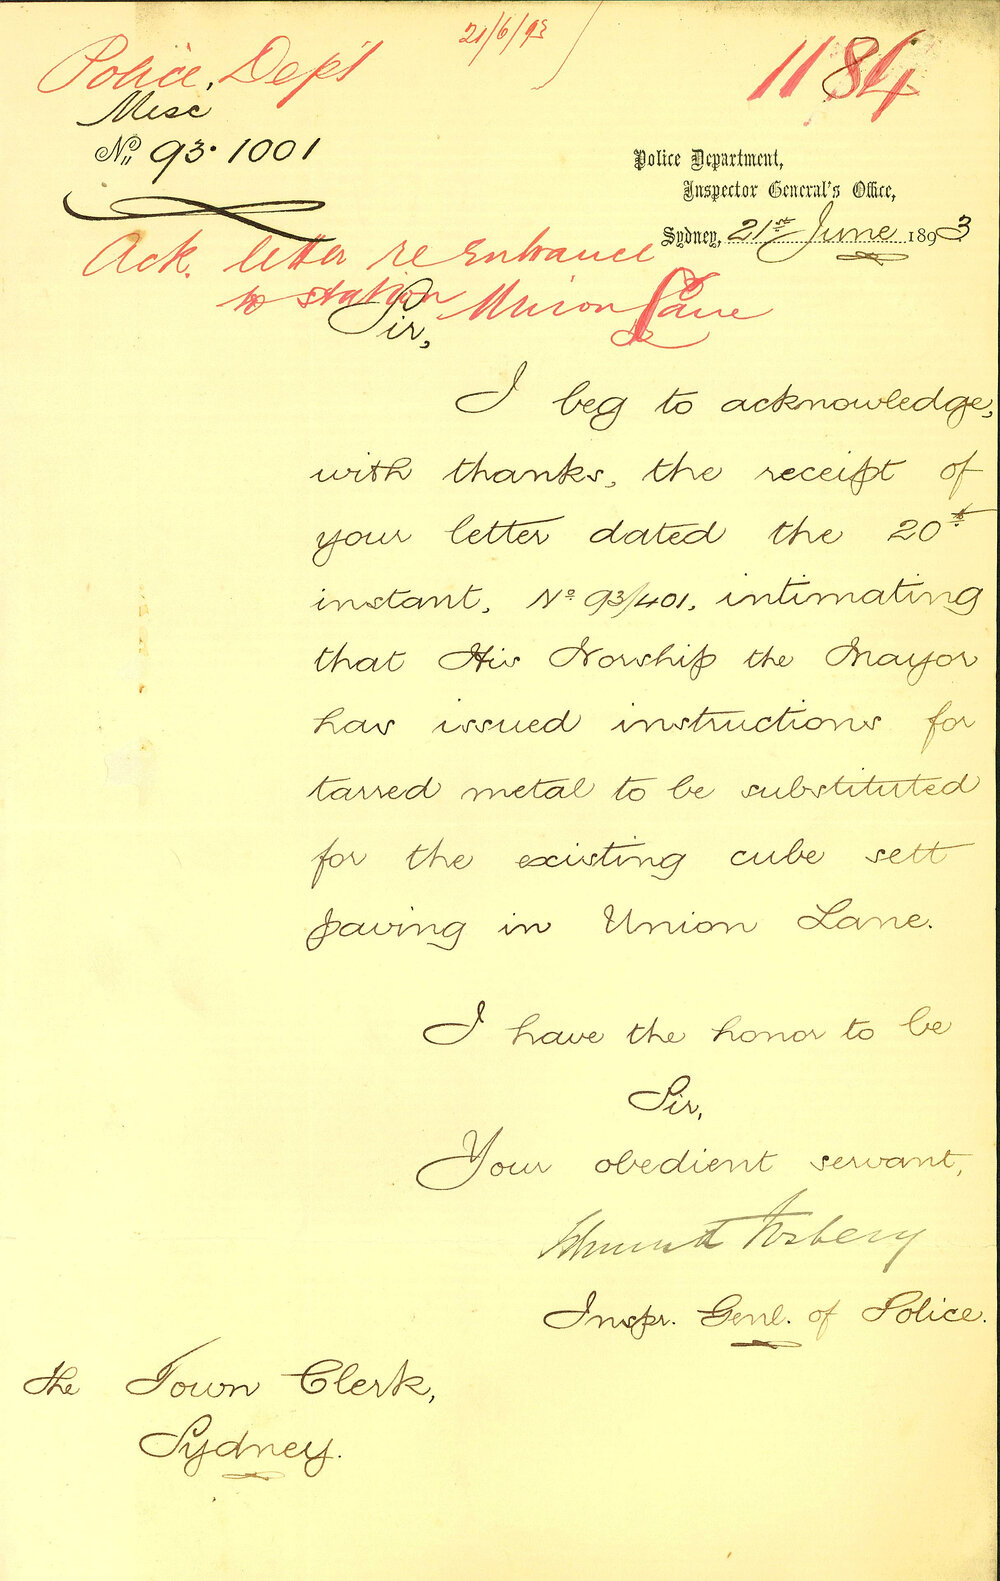 21/6/93
Police Dep't
1184
Misc
No. 93.1001
Police Department,
Inspector General's Office,
Sydney, 21st June 1893
Ack. letter re Entrance
to station Union Lane
Sir,
I beg to acknowledge,
with thanks, the receipt of
your letter dated the 20th
instant, No. 93/401, intimating
that His Worship the Mayor
has issued instructions for
tarred metal to be substituted
for the existing cube sett
paving in Union Lane.
I have the honor to be
Sir,
Your obedient servant,
Edmund Fosbery
Inspr. Genl. of Police.
The Town Clerk,
Sydney.